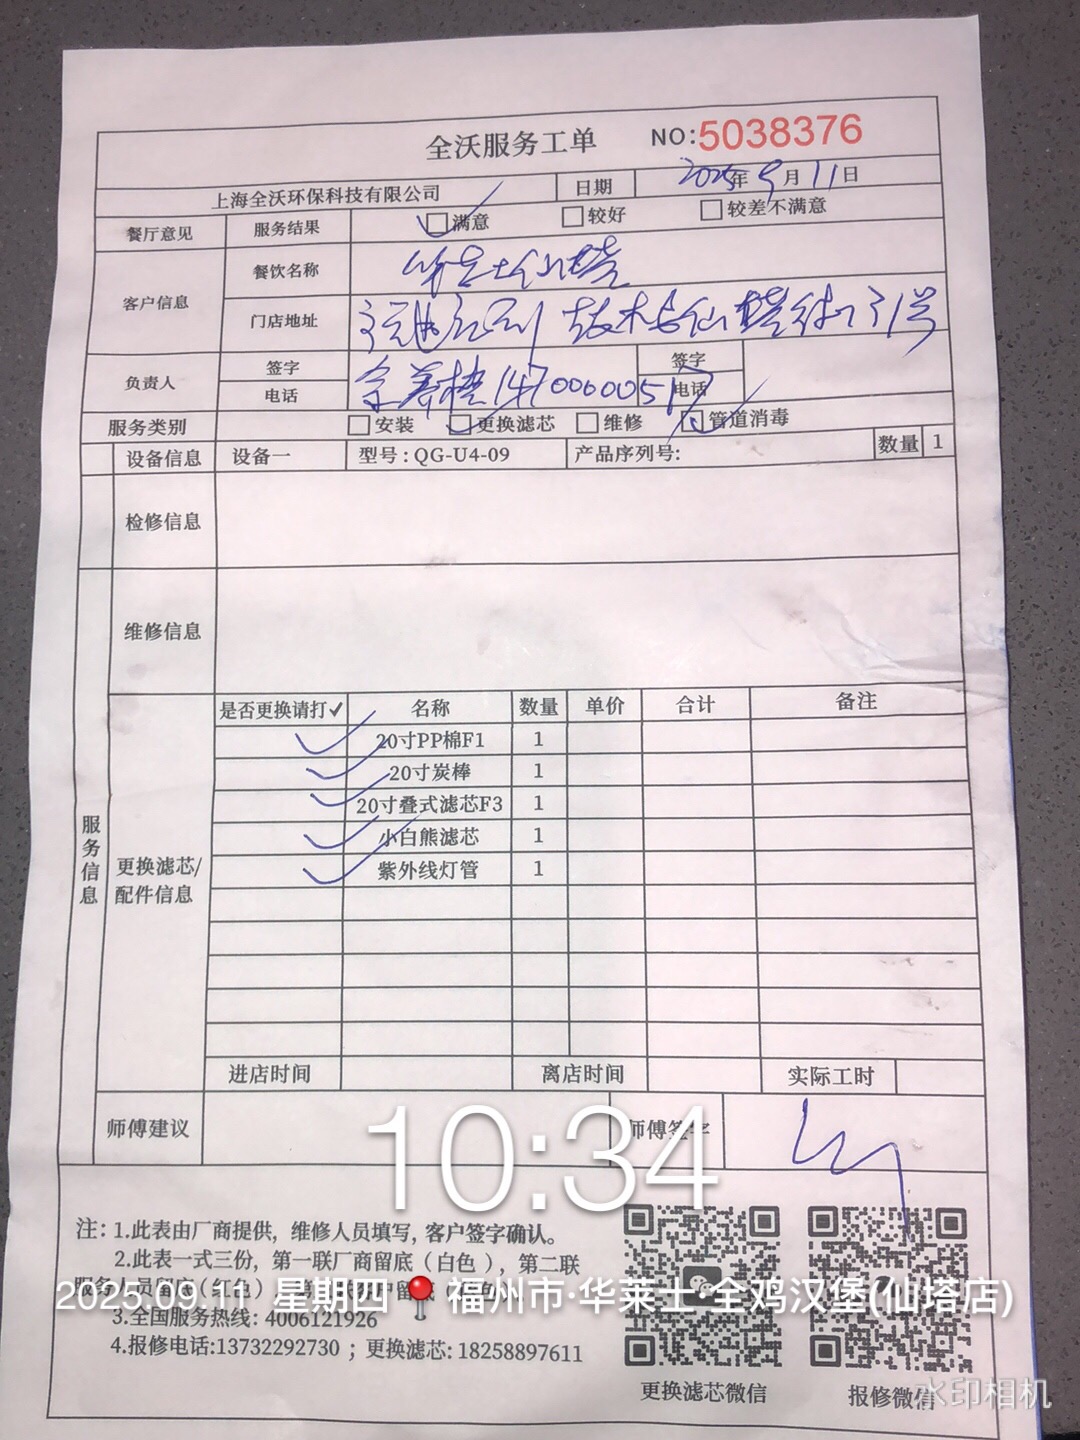 全沃服务工单 NO:5038376
上海全沃环保科技有限公司 日期 2025年9月11日
餐厅意见 服务结果 满意 较好 较差不满意
客户信息 餐饮名称 华莱士仙塔
门店地址 仙塔街 31号
负责人 签字 签字
电话 电话
服务类别 安装 更换滤芯 维修 管道消毒
设备信息 设备一 型号:QG-U4-09 产品序列号: 数量 1
检修信息
维修信息
服务信息
更换滤芯/
配件信息
是否更换请打✓ 名称 数量 单价 合计 备注
✓ 20寸PP棉F1 1
✓ 20寸炭棒 1
✓ 20寸叠式滤芯F3 1
✓ 小白熊滤芯 1
✓ 紫外线灯管 1
进店时间 离店时间 实际工时
师傅建议 师傅签字
10:34
注:1.此表由厂商提供,维修人员填写,客户签字确认。
2.此表一式三份,第一联厂商留底(白色),第二联
服务人员留底(红色)
2025.09.11 星期四 福州市·华莱士·全鸡汉堡(仙塔店)
3.全国服务热线:4006121926
4.报修电话:13732292730;更换滤芯:18258897611
更换滤芯微信 报修微信
水印相机